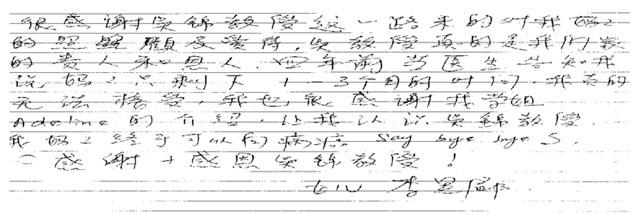 很感谢吴锦教授这一路来的对我妈妈
的照顾顾及爱待,吴教授真的是我们家
的贵人和恩人。四年前当医生告知我
说妈妈只剩下1-3个月的时间,我真的
无法接受,我也很感谢我学姐
Adeline的介绍,让我认识吴锦教授。
我妈妈终于可以向病痛 Say bye bye
感谢+感恩吴锦教授!
女儿 李